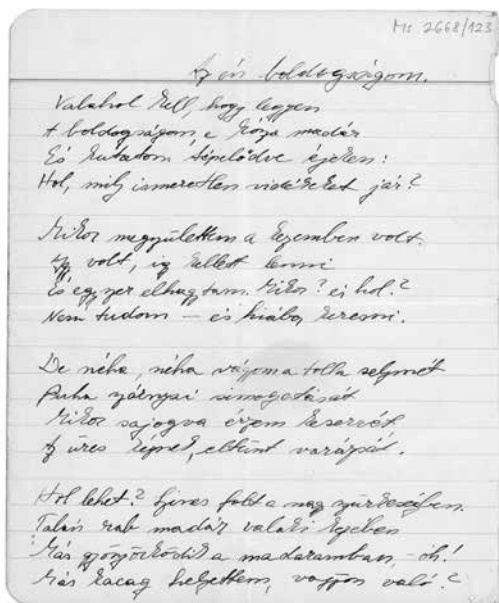 Ms 2668/123
Az én boldogságom.
Valahol kell, hogy legyen
A boldogságom, e kósza madár
És kutatom tépelődve éjeken:
Hol, mily ismeretlen vidékeket jár?
Mikor megszülettem a kezemben volt.
Így volt, így kellett lenni
És egyszer elhagytam. Mikor? és hol?
Nem tudom — és hiába keresni.
De néha, néha vágyom a tolla selymét
Puha szárnyai simogatását
Mikor sajogva érzem keservét
Az üres kéznek, eltünt varázsát.
Hol lehet? Színes folt a nagy szürkeségben.
Talán rab madár valaki kezében
Más gyönyörködik a madaramban, - óh!
Más kacag helyettem, vajjon való?